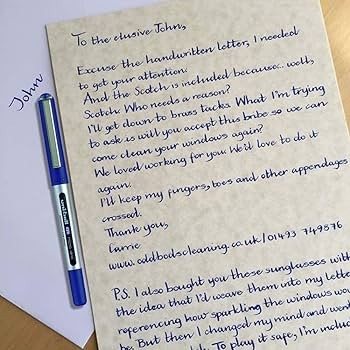 John
To the elusive John,
Excuse the handwritten letter, I needed
to get your attention.
And the Scotch is included because... well,
Scotch. Who needs a reason?
I'll get down to brass tacks. What I'm trying
to ask is will you accept this bribe so we can
come clean your windows again?
We loved working for you. We'd love to do it
again.
I'll keep my fingers, toes and other appendages
crossed.
Thank you,
Carrie
www.oddbodscleaning.co.uk/01493 749576
P.S. I also bought you these sunglasses with
the idea that I'd weave them into my letter
referencing how sparkling the windows wou
be. But then I changed my mind and went
To play it safe, I'm inclu
uni-ball